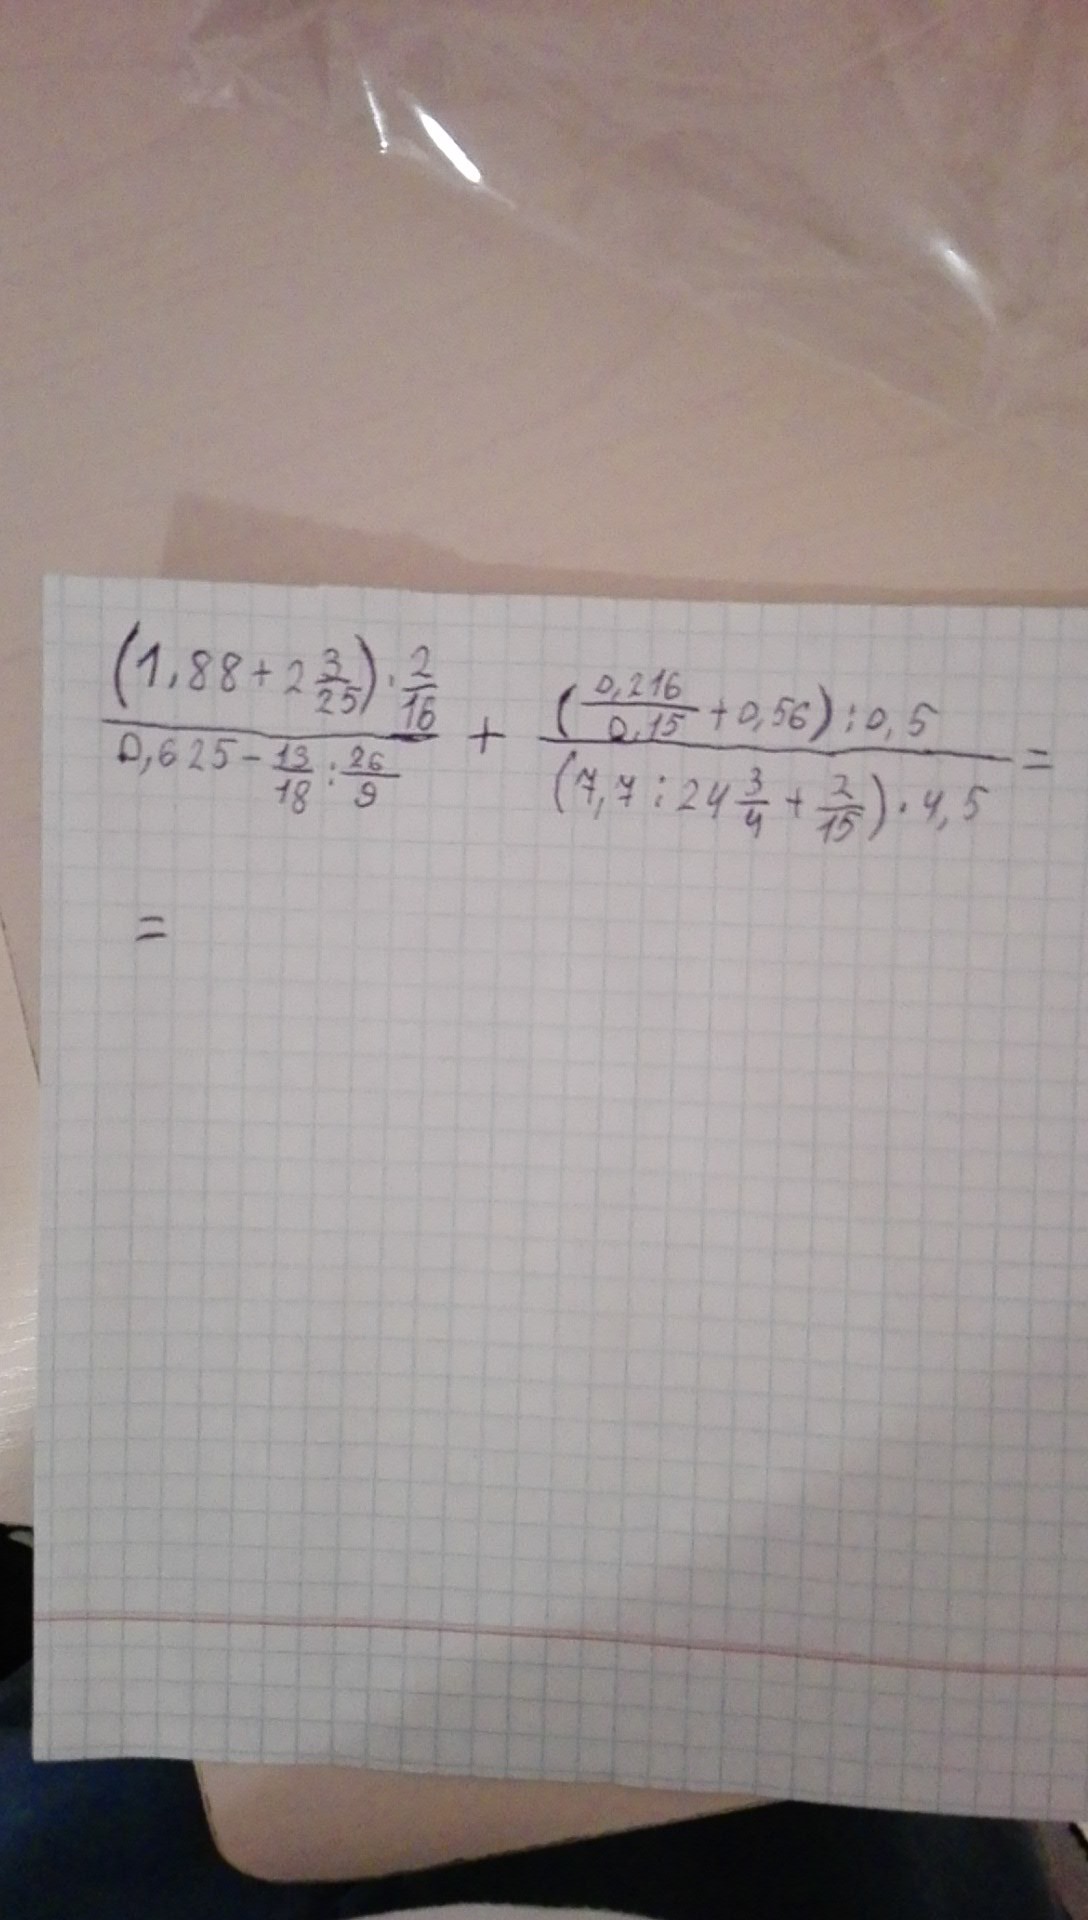 (1,88 + 2 3/25) · 2/16 / 0,625 - 13/18 : 26/9 + (0,216/0,15 + 0,56) : 0,5 / (7,7 : 24 3/4 + 2/15) · 4,5 =
=